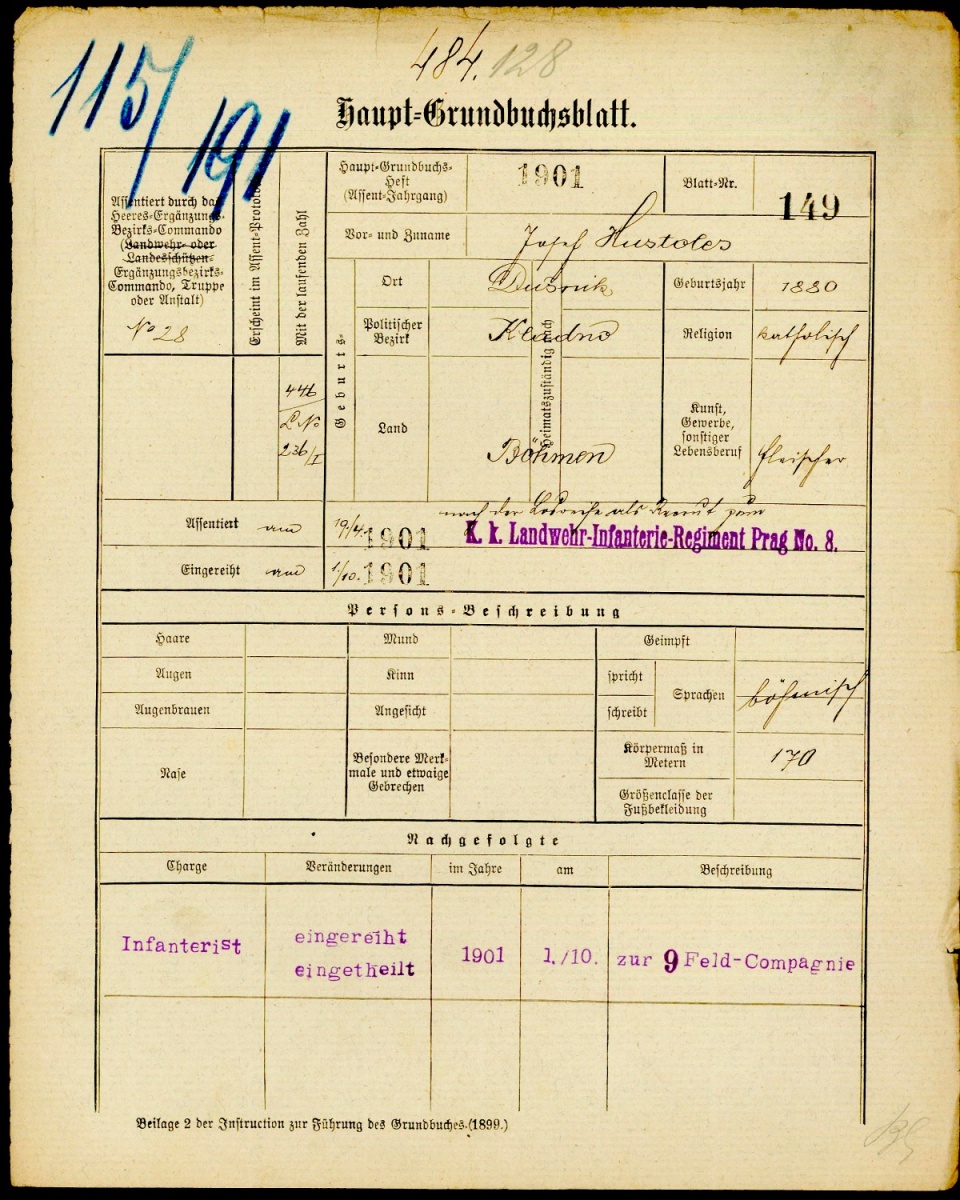 115/191
484. 128
Haupt-Grundbuchsblatt.
Assentiert durch das
Heeres-Ergänzungs-
Bezirks-Commando
(Landwehr- oder
Landesschützen-
Ergänzungsbezirks-
Commando, Truppe
oder Anstalt)
No 28
Erscheint im Assent-Protokoll
Mit der laufenden Zahl
446
L No
236/I
Haupt-Grundbuchs-
Heft
(Assent-Jahrgang)
1901
Blatt-Nr.
149
Vor- und Zuname
Josef Hustoles
Geburts-
Ort
Dušnik
Politischer
Bezirk
Kladno
Land
Böhmen
Heimatszuständig nach
Geburtsjahr
1880
Religion
katholisch
Kunst,
Gewerbe,
sonstiger
Lebensberuf
Fleischer
Assentiert am
19./4. 1901
nach der Losreihe als Recrut zum
K. k. Landwehr-Infanterie-Regiment Prag No. 8.
Eingereiht am
1/10. 1901
Persons-Beschreibung
Haare
Mund
Geimpft
Augen
Kinn
spricht
schreibt
Sprachen
böhmisch
Augenbrauen
Angesicht
Nase
Besondere Merk-
male und etwaige
Gebrechen
Körpermaß in
Metern
170
Größenclasse der
Fußbekleidung
Nachgefolgte
Charge
Veränderungen
im Jahre
am
Beschreibung
Infanterist
eingereiht
eingetheilt
1901
1./10.
zur 9 Feld-Compagnie
Beilage 2 der Instruction zur Führung des Grundbuches. (1899.)